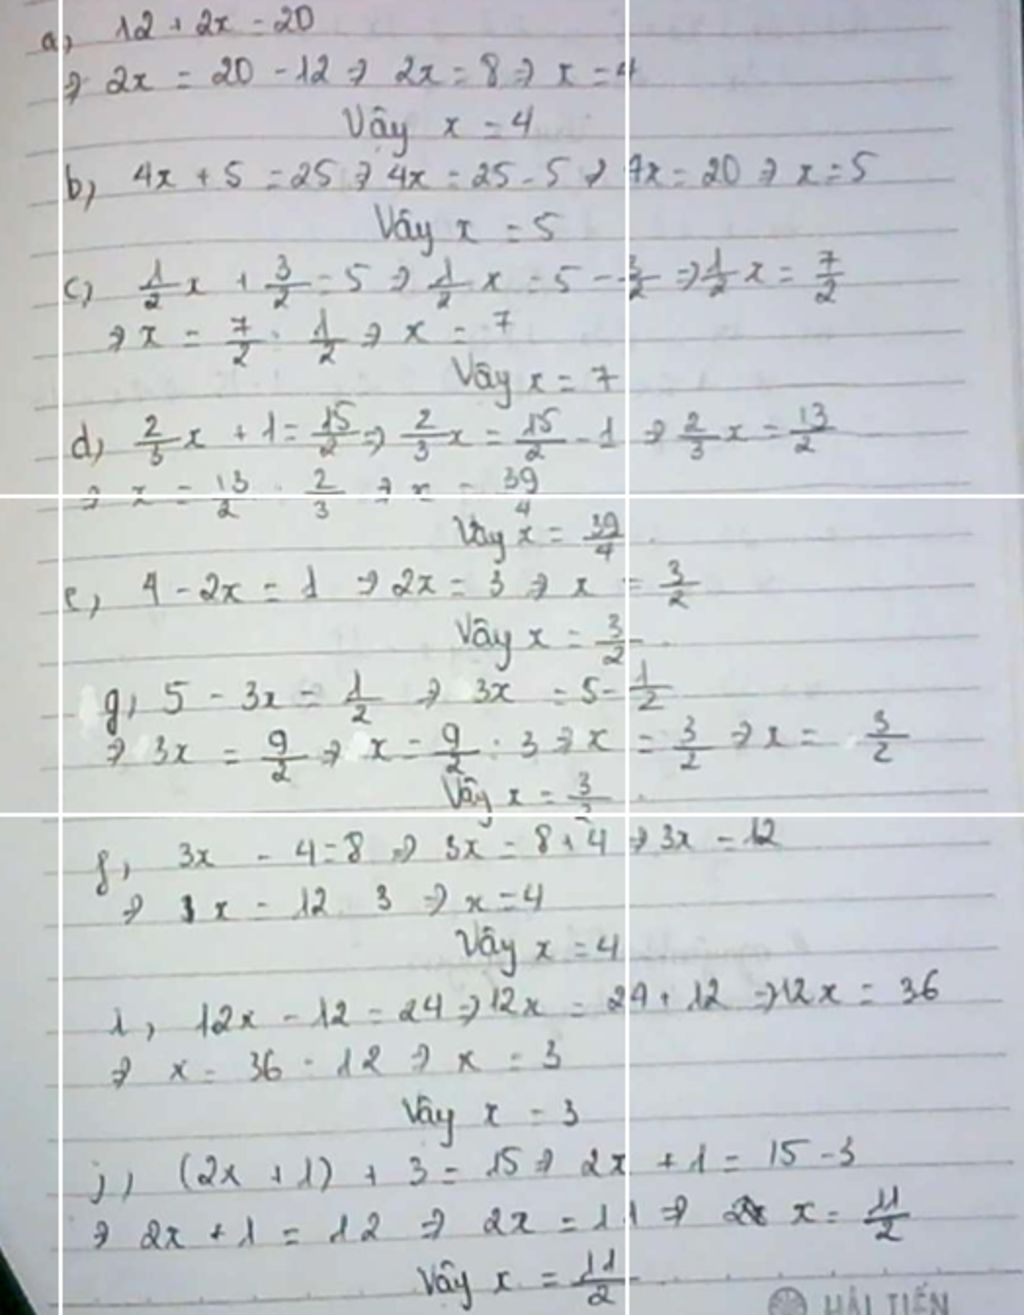 a) 12 + 2x = 20
⇒ 2x = 20 - 12 ⇒ 2x = 8 ⇒ x = 4
Vậy x = 4
b) 4x + 5 = 25 ⇒ 4x = 25 - 5 ⇒ 4x = 20 ⇒ x = 5
Vậy x = 5
c) 1/2 x + 3/2 = 5 ⇒ 1/2 x = 5 - 3/2 ⇒ 1/2 x = 7/2
⇒ x = 7/2 : 1/2 ⇒ x = 7
Vậy x = 7
d) 2/3 x + 1 = 15/2 ⇒ 2/3 x = 15/2 - 1 ⇒ 2/3 x = 13/2
⇒ x = 13/2 : 2/3 ⇒ x = 39/4
Vậy x = 39/4
e) 4 - 2x = 1 ⇒ 2x = 3 ⇒ x = 3/2
Vậy x = 3/2
g) 5 - 3x = 1/2 ⇒ 3x = 5 - 1/2
⇒ 3x = 9/2 ⇒ x = 9/2 : 3 ⇒ x = 3/2 ⇒ x = 3/2
Vậy x = 3/2
f) 3x - 4 = 8 ⇒ 3x = 8 + 4 ⇒ 3x = 12
⇒ x = 12 : 3 ⇒ x = 4
Vậy x = 4
i) 12x - 12 = 24 ⇒ 12x = 24 + 12 ⇒ 12x = 36
⇒ x = 36 : 12 ⇒ x = 3
Vậy x = 3
j) (2x + 1) + 3 = 15 ⇒ 2x + 1 = 15 - 3
⇒ 2x + 1 = 12 ⇒ 2x = 11 ⇒ x = 11/2
Vậy x = 11/2
HẢI TIẾN